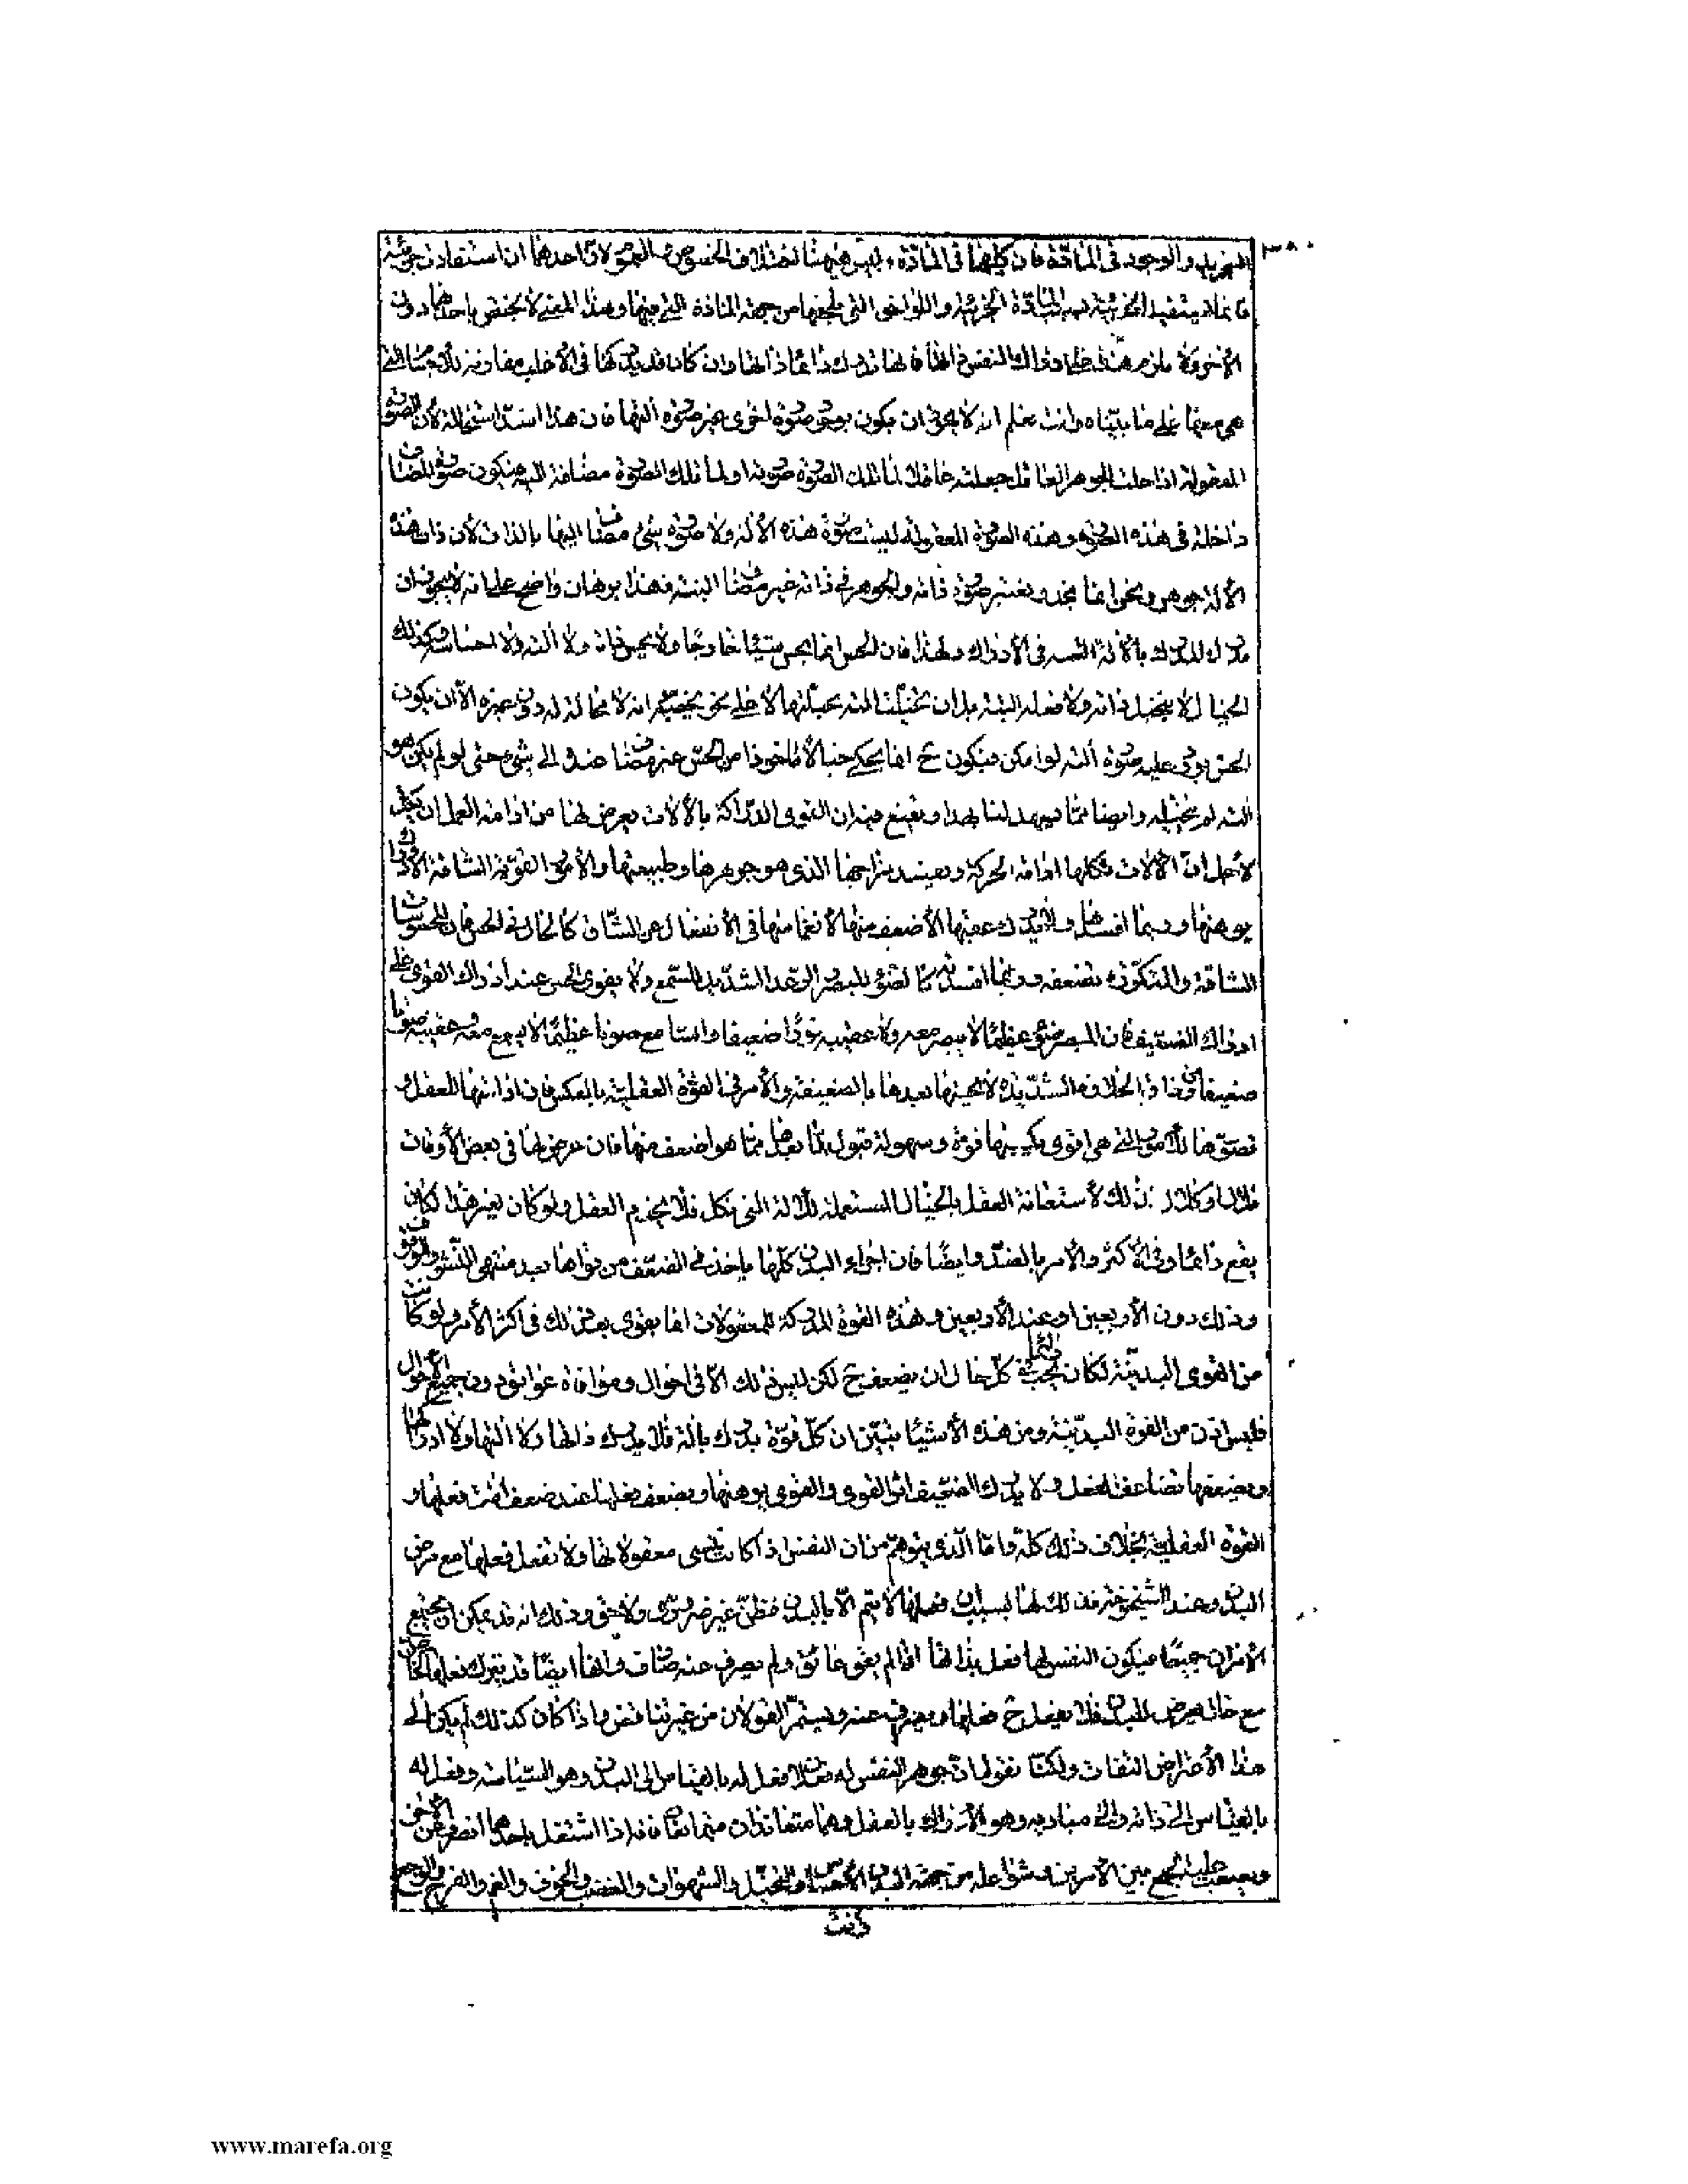 التجريد والوجود في المادة فان كليهما في المادة وليس فيهما اختلاف الخصوص والعموم لان احدهما ان استفاد جزئية
فانما يستفيد الجزئية بسبب المادة الجزئية واللواحق التي تلحقها من جهة المادة التي فيها وهذا المعنى لا يختص باحدهما دون
الاخر ولا يلزم هذا على ادراك النفس ذاتها فانها تدرك دائما ذاتها وان كان قد يدركها في الاغلب مقارنة للاجسام التي
هي معها على ما بيناه وانت تعلم انه لا يجوز ان يكون بوجود صورة اخرى غير صورة آلتها فان هذا اشد استحالة لان الصورة
المعقولة اذا حلت الجوهر العاقل جعلته عاقلا لما تلك الصورة صورته او لما تلك الصورة مضافة اليه فيكون صورة المضاف
داخلة في هذه الصورة وهذه الصورة المعقولة ليست صورة هذه الآلة ولا صورة شيء مضاف اليها بالذات لان ذات هذه
الآلة جوهر ونحن انما نجد ونعتبر صورة ذاته والجوهر في ذاته غير مضاف البتة فهذا برهان واضح على انه لا يجوز ان
يدرك المدرك بالآلة آلته في الادراك ولهذا فان الحس انما يحس شيئا خارجا ولا يحس ذاته ولا آلته ولا احساسه وكذلك
الخيال لا يتخيل ذاته ولا فعله البتة بل ان تخيل آلته تخيلها لا على نحو يخصه انه لا محالة له دون غيره الا ان يكون
الحس يورد عليه صورة آلته لو امكن فيكون ح انما يحكى خيالا ماخوذا من الحس غير مضاف عنده الى شيء حتى لو لم يكن هو
آلته لم يتخيله وايضا مما يشهد لنا بهذا ويقنع فيه ان القوى الدراكة بالآلات يعرض لها من ادامة العمل ان تكل
لاجل ان الآلات تكلها ادامة الحركة وتفسد مزاجها الذي هو جوهرها وطبيعتها والامور القوية الشاقة الادراك
يوهنها وربما افسدها ولا يدرك عقيبها الاضعف منها لانغماسها في الانفعال عن الشاق كالحال في الحس فان المحسوسات
الشاقة والمتكررة تضعفه وربما افسدته كالضوء للبصر والرعد الشديد للسمع ولا يقوى الحس عند ادراك القوى على
ادراك الضعيف فان المبصر ضوءا عظيما لا يبصر معه ولا عقيبه نورا ضعيفا والسامع صوتا عظيما لا يسمع معه وعقيبه صوتا
ضعيفا ومن ذاق الحلاوة الشديدة لا يحس بعدها بالضعيفة والامر في القوة العقلية بالعكس فان ادامتها للعقل و
تصورها للامور التي هي اقوى يكسبها قوة وسهولة قبول لما بعدها مما هو اضعف منها فان عرض لها في بعض الاوقات
ملال وكلال فذلك لاستعانة العقل بالخيال المستعملة للآلة التي تكل فلا يخدم العقل ولو كان لغير هذا لكان
يقع دائما وفي الاكثر والامر بالضد وايضا فان اجزاء البدن كلها ياخذ في الضعف من قواها بعد منتهى النشو والوقوف
وذلك دون الاربعين او عند الاربعين وهذه القوة المدركة للمعقولات انما يقوى بعد ذلك في اكثر الامر ولو كانت
من القوى البدنية لكان يجب دائما في كل حال ان يضعف ح لكن ليس ذلك الا في احوال وموافاة عوايق دون جميع الاحوال
فليس اذن من القوة البدنية ومن هذه الاشياء يتبين ان كل قوة يدرك بآلة فلا يدرك ذاتها ولا آلتها ولا ادراكها
ويضعفها تضاعف الفعل ولا يدرك الضعيف اثر القوي والقوي يوهنها ويضعف فعلها عند ضعف آلات فعلها و
القوة العقلية بخلاف ذلك كله واما الذي يتوهم من ان النفس اذا كانت تنسى معقولاتها ولا تفعل فعلها مع مرض
البدن وعند الشيخوخة فذلك لها بسبب ان فعلها لا يتم الا بالبدن فظن غير ضروري ولا حق وذلك انه قد يمكن ان يجتمع
الامران جميعا فيكون النفس لها فعل بذاتها اذا لم يعق عائق ولم يصرف عنه صارف وانها ايضا قد يترك فعلها الخاص
مع حال يعرض للبدن فلا يفعل ح فعلها ويصرف عنه ويستمر القولان من غير تناقض واذا كان كذلك لم يكن الى
هذا الاعتراض التفات ولكنا نقول ان جوهر النفس له فعلان فعل له بالقياس الى البدن وهو السياسة وفعل له
بالقياس الى ذاته والى مباديه وهو الادراك بالعقل وهما متعاندان متمانعان فانه اذا اشتغل باحدهما انصرف عن الآخر
ويصعب عليه الجمع بين الامرين وشواغله من جهة البدن الاحساس والتخيل والشهوات والغضب والخوف والغم والفرح والوجع
وانت
www.marefa.org